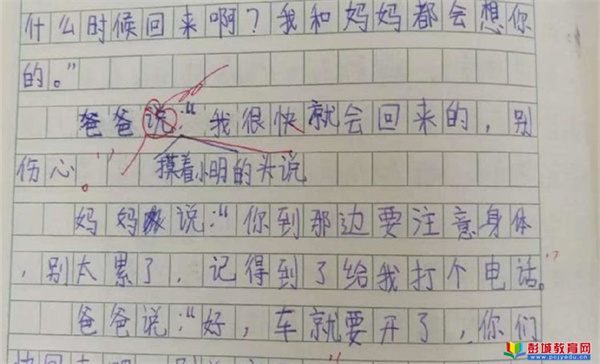 什么时候回来啊？我和妈妈都会想你
的。”
爸爸说：“我很快就会回来的，别
伤心。”
摸着小明的头说
妈妈说：“你到那边要注意身体
，别太累了，记得到了给我打个电话。”
爸爸说：“好，车就要开了，你们
彭城教育网
www.pcjyedu.com